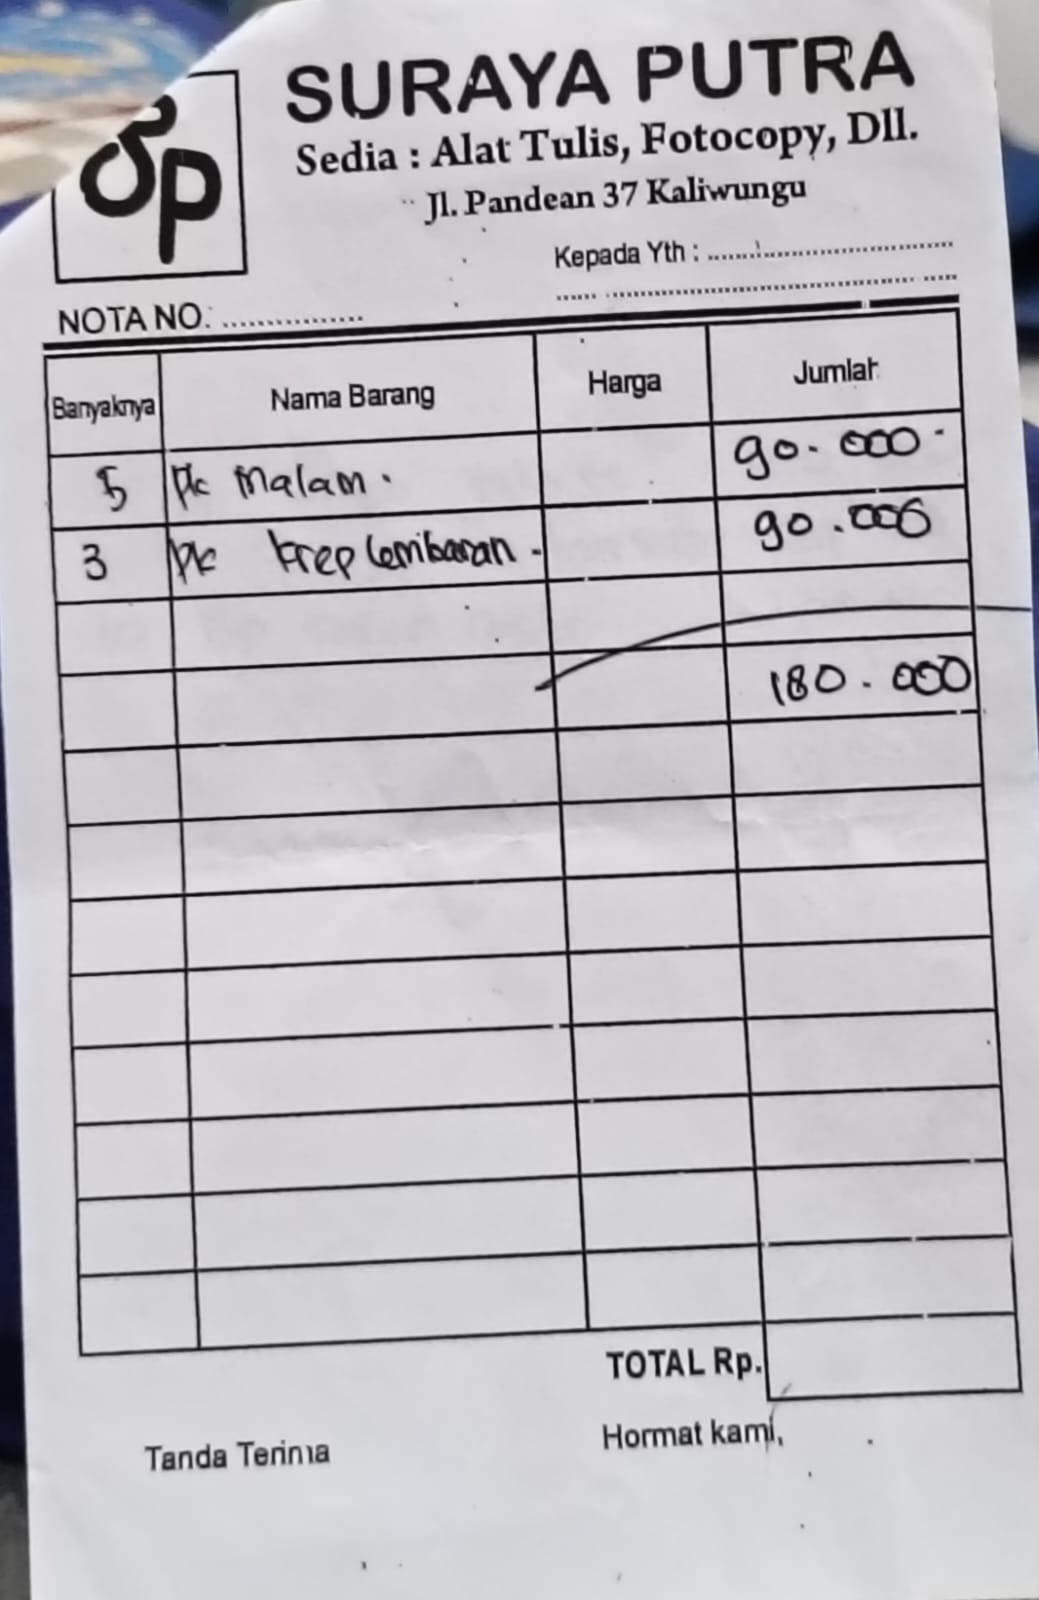 SP
SURAYA PUTRA
Sedia : Alat Tulis, Fotocopy, Dll.
Jl. Pandean 37 Kaliwungu
Kepada Yth :
NOTA NO.
Banyaknya Nama Barang Harga Jumlah
5 pk malam. 90.000
3 pk krep lembaran 90.000
180.000
TOTAL Rp.
Tanda Terima Hormat kami,